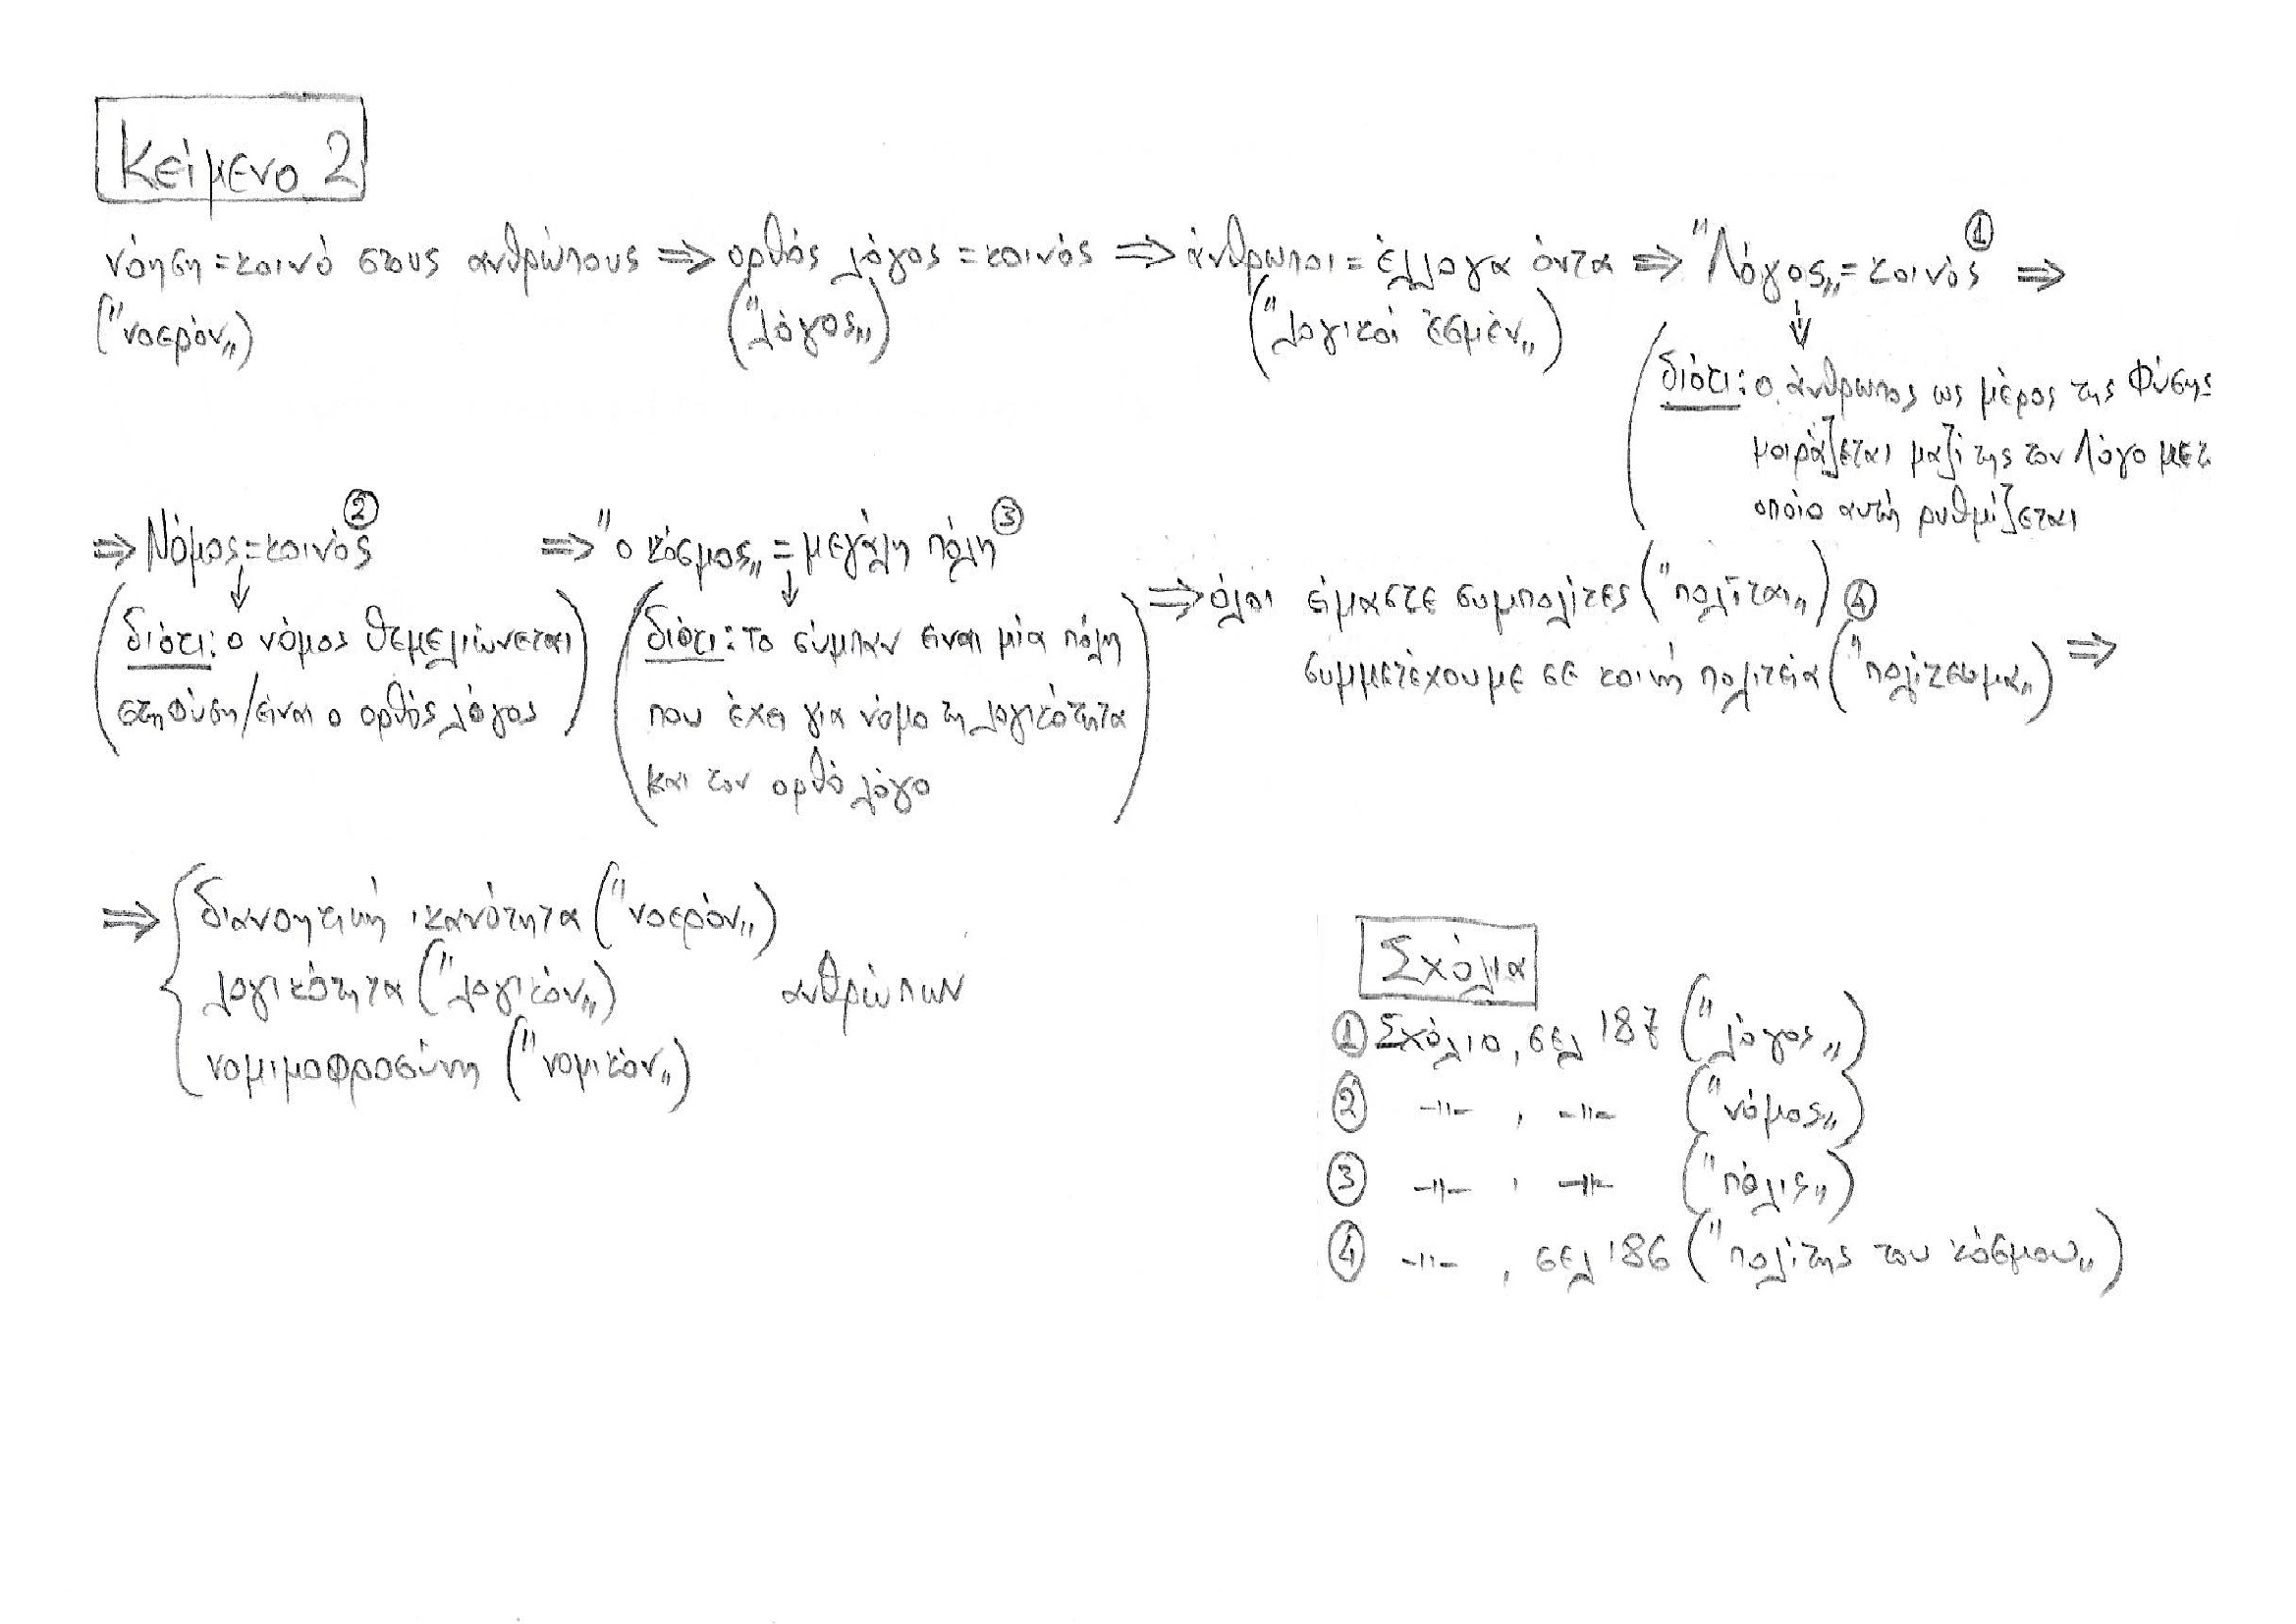 Κείμενο 2
νόηση = κοινό στους ανθρώπους ⇒ ορθός λόγος = κοινός ⇒ άνθρωποι = έλλογα όντα ⇒ "Λόγος„ = κοινός ① ⇒
("νοερόν„) ("λόγος„) ("λογικοί ἐσμέν„)
(διότι: ο άνθρωπος ως μέρος της Φύσης
μοιράζεται μαζί της τον Λόγο με τ
οποίο αυτή ρυθμίζεται
⇒ Νόμος = κοινός ② ⇒ "ο κόσμος„ = μεγάλη πόλη ③
⇒ όλοι είμαστε συμπολίτες ("πολῖται„) ④
συμμετέχουμε σε κοινή πολιτεία ("πολίτευμα„) ⇒
(διότι: ο νόμος θεμελιώνεται
στη φύση/είναι ο ορθός λόγος)
(διότι: το σύμπαν είναι μία πόλη
που έχει για νόμο τη λογικότητα
και τον ορθό λόγο)
⇒ { διανοητική ικανότητα ("νοερόν„)
λογικότητα ("λογικόν„) ανθρώπων
νομιμοφροσύνη ("νομικόν„)
Σχόλια
① Σχόλιο, σελ 187 ("λόγος„)
② -〃- , -〃- ("νόμος„)
③ -〃- , -〃- ("πόλις„)
④ -〃- , σελ 186 ("πολίτης του κόσμου„)